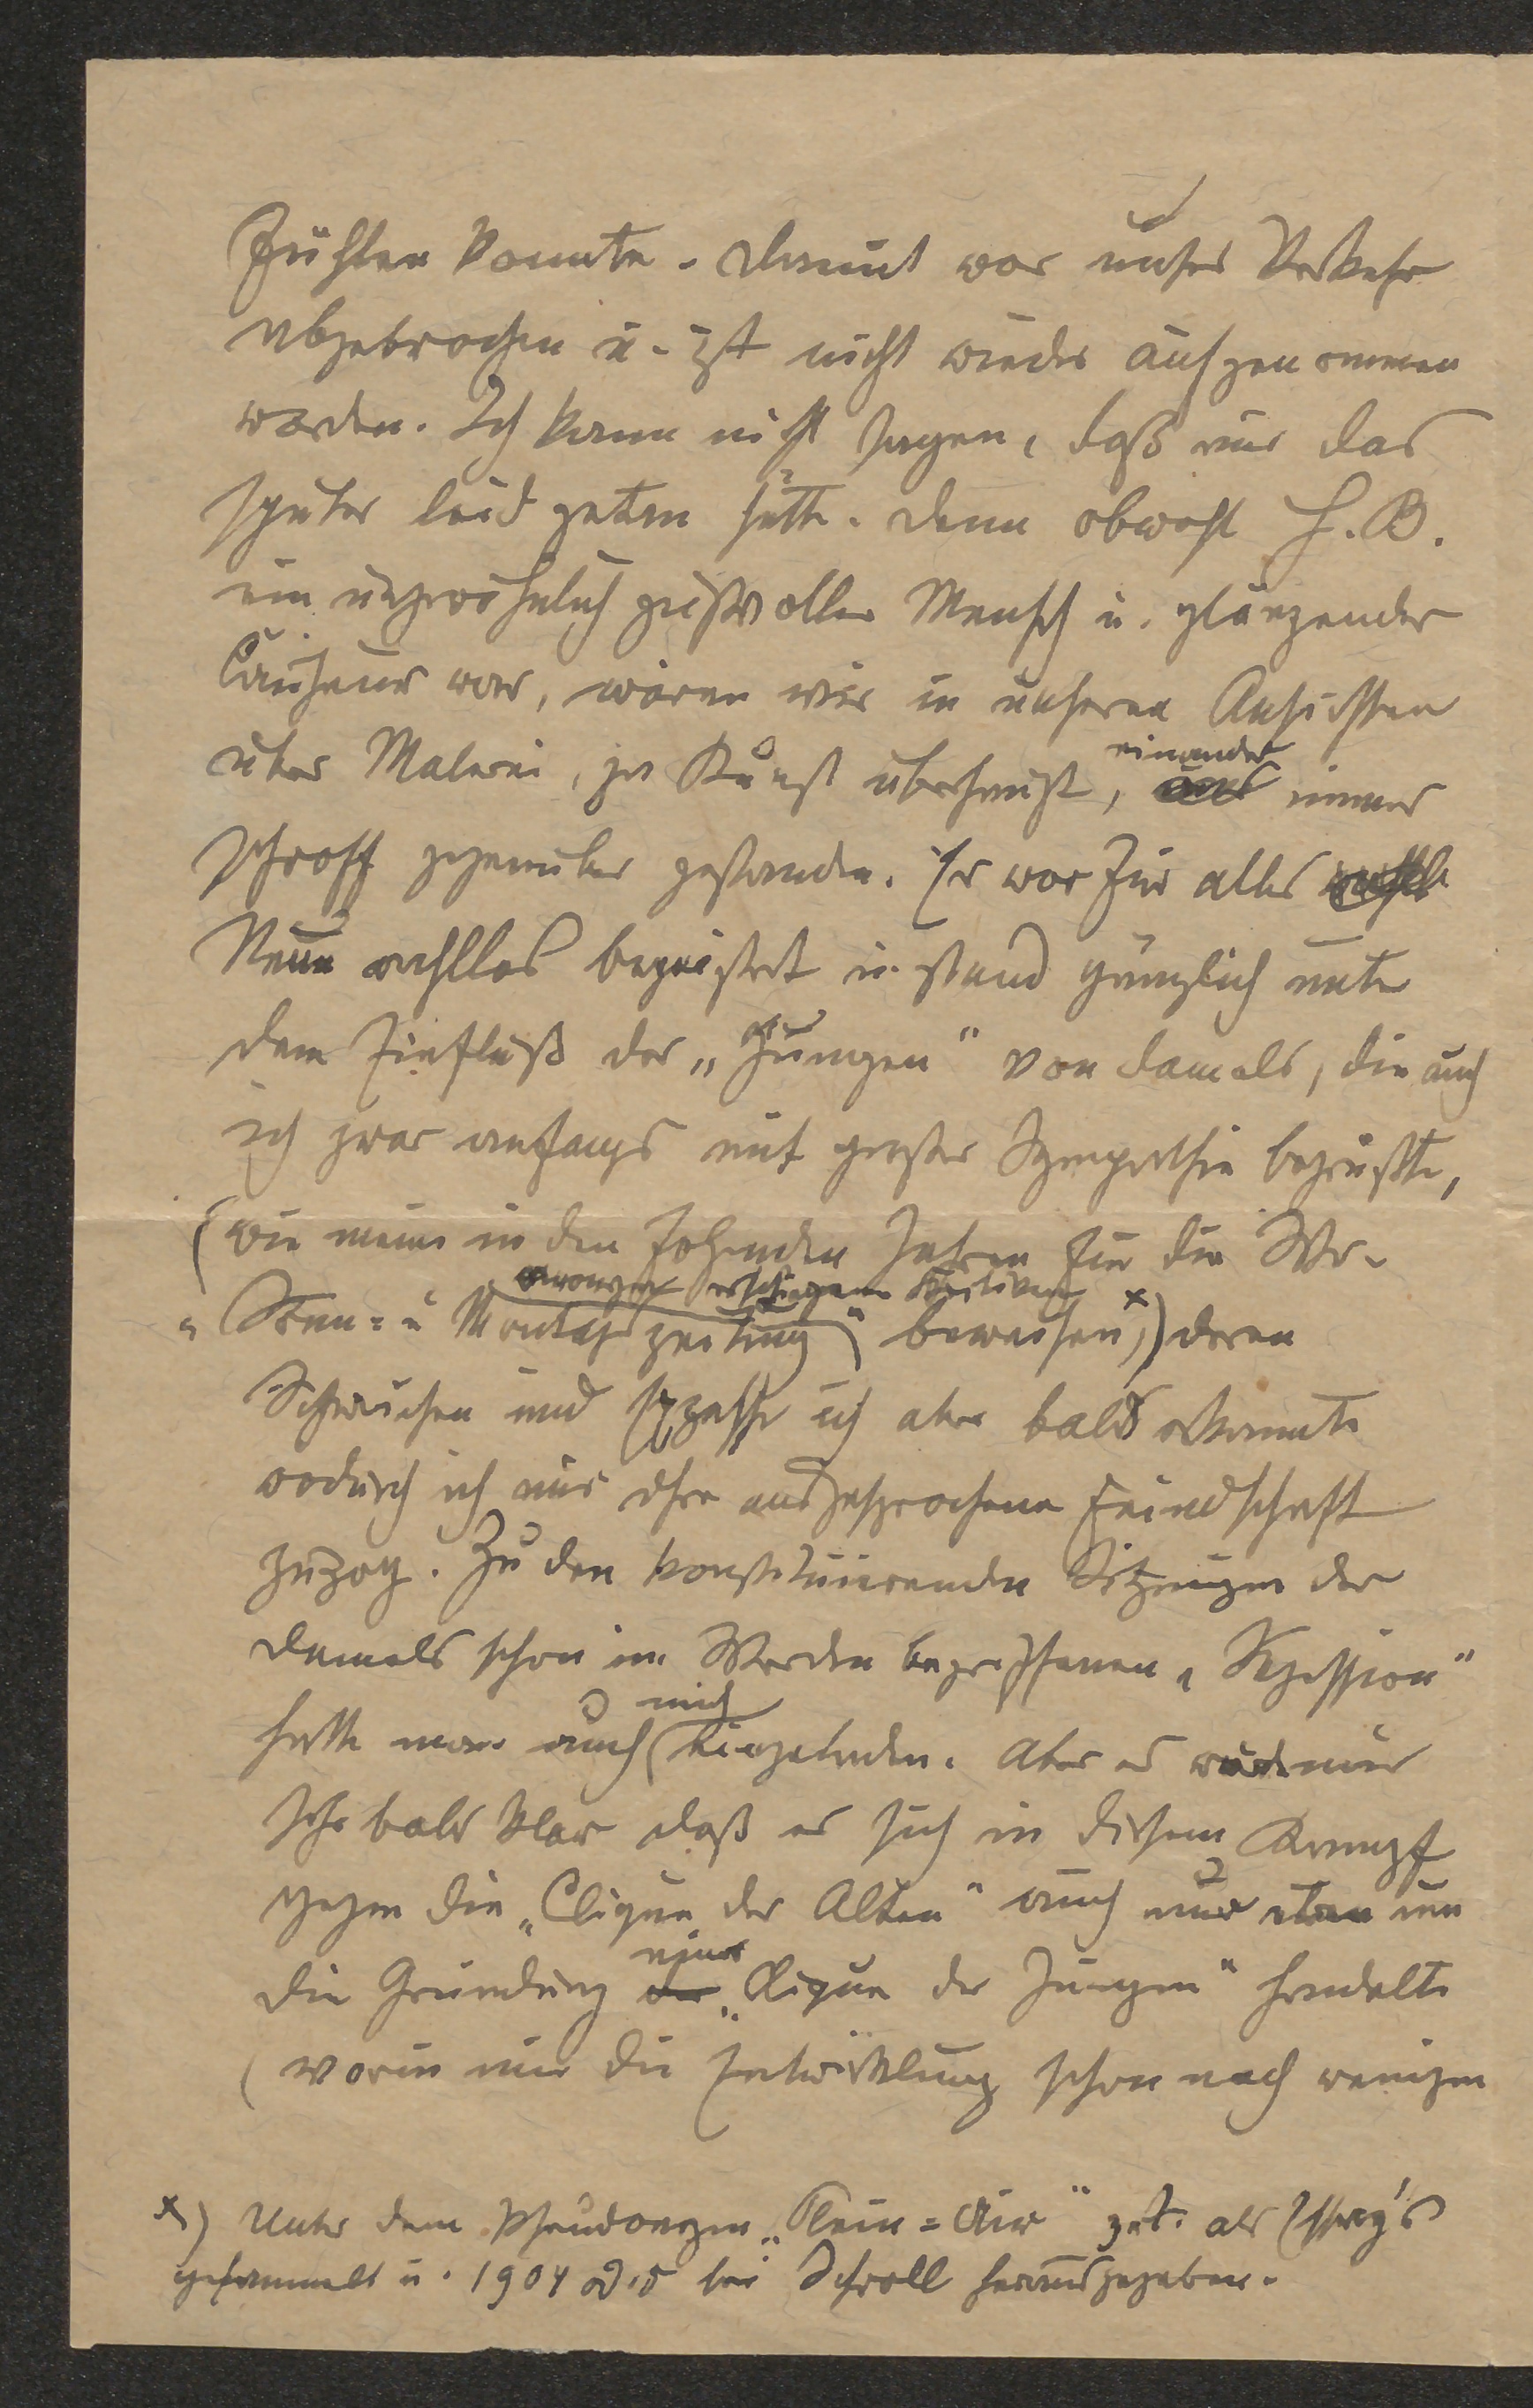 fühlen konnte. Damit war unser Verkehr
abgebrochen u. ist nicht wieder aufgenommen
worden. Ich kann nicht sagen, daß mir das
später leid getan hätte. Denn obwohl H. B.
ein ungewöhnlich geistvoller Mensch u. glänzender
Causeur war, waren wir in unseren Ansichten
über Malerei, ja Kunst überhaupt, einander immer
schroff gegenüber gestanden. Er war für alles
Neue wahllos begeistert u. stand gänzlich unter
dem Einfluß der „Jungen" von damals, die auch
ich zwar anfangs mit großer Sympathie begrüßte,
(wie meine in den folgenden Jahren für die Wr.
„Sonn- u Montagszeitung" anonym erschienenen Kritiken beweisen x) deren
Schwächen und Exzesse ich aber bald erkannte
wodurch ich mir ihre ausgesprochene Feindschaft
zuzog. Zu den konstituierenden Sitzungen der
damals schon im Werden begriffenen „Sezession"
hatte man auch mich eingeladen. Aber es wurde mir
sehr bald klar daß es sich in diesem Kampf
gegen die „Clique der Alten" auch nur etwa um
die Gründung der einer „Clique der Jungen" handelte
(worin mir die Entwicklung schon nach wenigen
x) Unter dem Pseudonym „Plein=Air" gez. als Essay's
gesammelt u. 1904 bei Schroll herausgegeben.